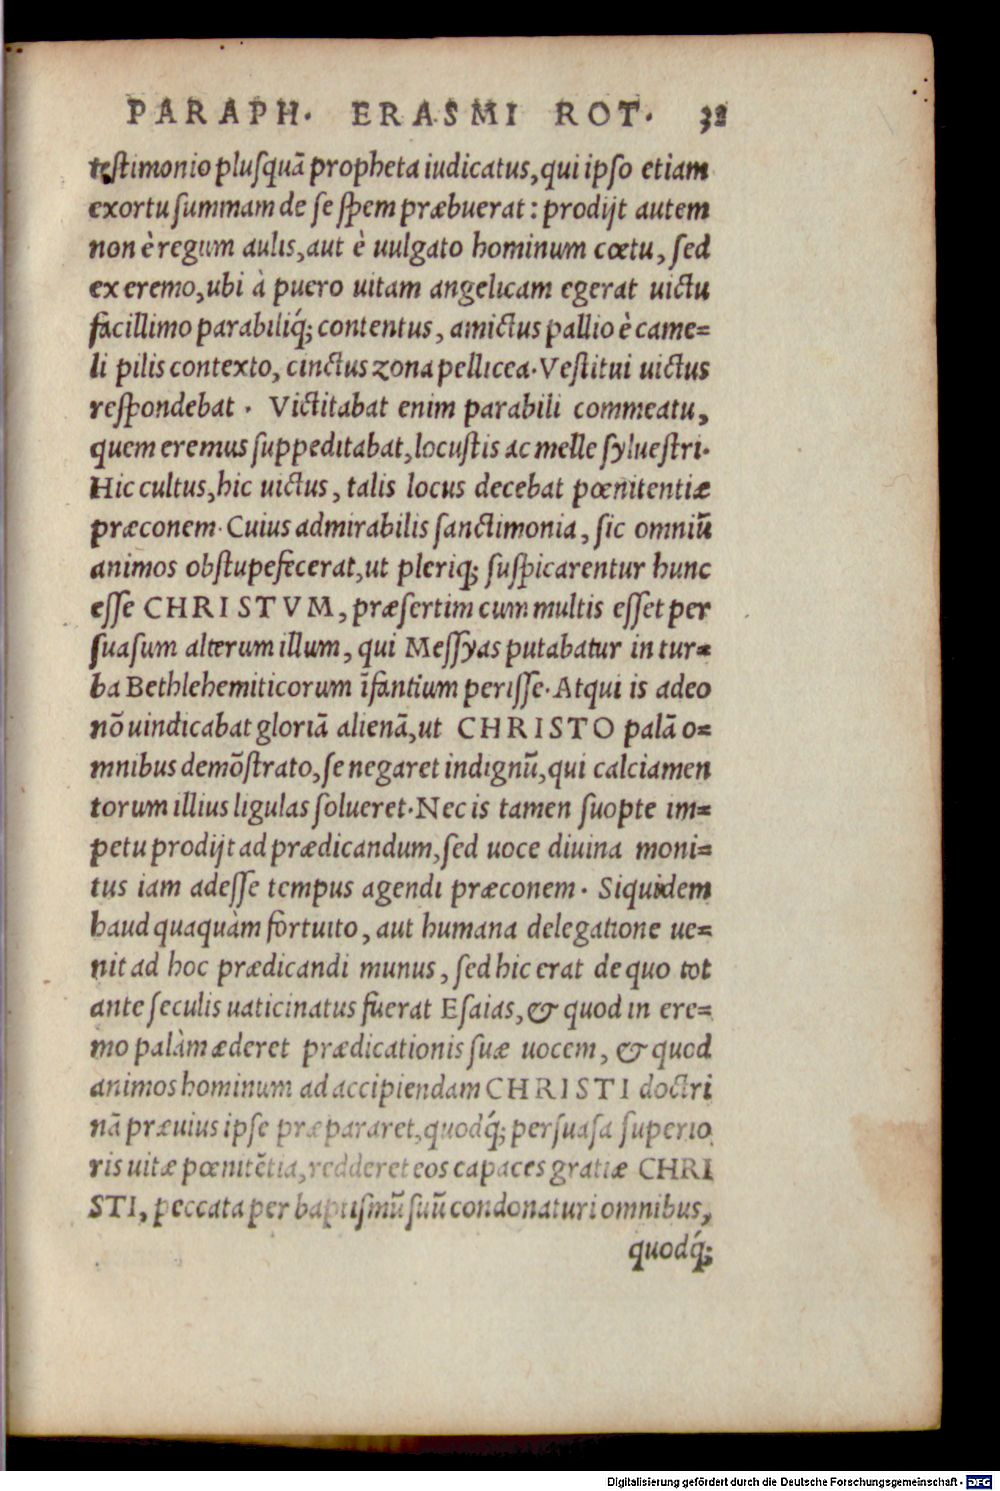 PARAPH. ERASMI ROT. 32
testimonio plusquā propheta iudicatus, qui ipso etiam
exortu summam de se spem præbuerat: prodijt autem
non è regum aulis, aut è uulgato hominum cœtu, sed
ex eremo, ubi à puero uitam angelicam egerat uictu
facillimo parabiliq́; contentus, amictus pallio è came=
li pilis contexto, cinctus zona pellicea. Vestitui uictus
respondebat. Victitabat enim parabili commeatu,
quem eremus suppeditabat, locustis ac melle syluestri.
Hic cultus, hic uictus, talis locus decebat pœnitentiæ
præconem. Cuius admirabilis sanctimonia, sic omniū
animos obstupefecerat, ut pleriq; suspicarentur hunc
esse CHRISTVM, præsertim cum multis esset per
suasum alterum illum, qui Messyas putabatur in tur=
ba Bethlehemiticorum īfantium perisse. Atqui is adeo
nō uindicabat gloriā alienā, ut CHRISTO palā o=
mnibus demōstrato, se negaret indignū, qui calciamen
torum illius ligulas solueret. Nec is tamen suopte im=
petu prodijt ad prædicandum, sed uoce diuina moni=
tus iam adesse tempus agendi præconem. Siquidem
haud quaquàm fortuito, aut humana delegatione ue=
nit ad hoc prædicandi munus, sed hic erat de quo tot
ante seculis uaticinatus fuerat Esaias, & quod in ere=
mo palàm æderet prædicationis suæ uocem, & quod
animos hominum ad accipiendam CHRISTI doctri
nā præuius ipse præpararet, quodq́; persuasa superio
ris uitæ pœnitētia, redderet eos capaces gratiæ CHRI
STI, peccata per baptismū suū condonaturi omnibus,
quodq́;
Digitalisierung gefördert durch die Deutsche Forschungsgemeinschaft - DFG